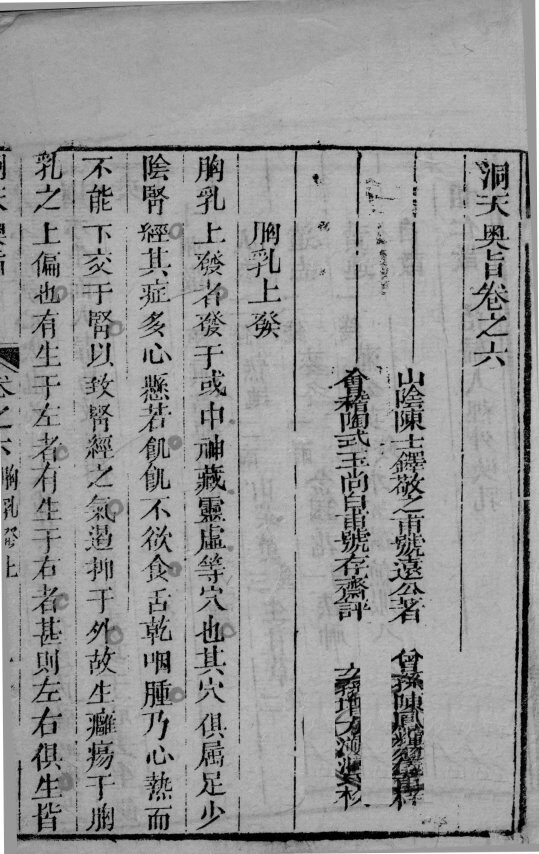 洞天奧旨卷之六
山陰陳士鐸敬之甫號遠公著
會稽陶式玉尚白甫號存齋評
曾孫陳鳳輝
胸乳上發
胸乳上發者發于或中神藏靈虛等穴也其穴俱屬足少
陰腎經其症多心懸若飢飢不欲食舌乾咽腫乃心熱而
不能下交于腎以致腎經之氣遏抑于外故生癰瘍于胸
乳之上偏也有生于左者有生于右者甚則左右俱生皆
洞天奧旨 卷之六 胸乳發上